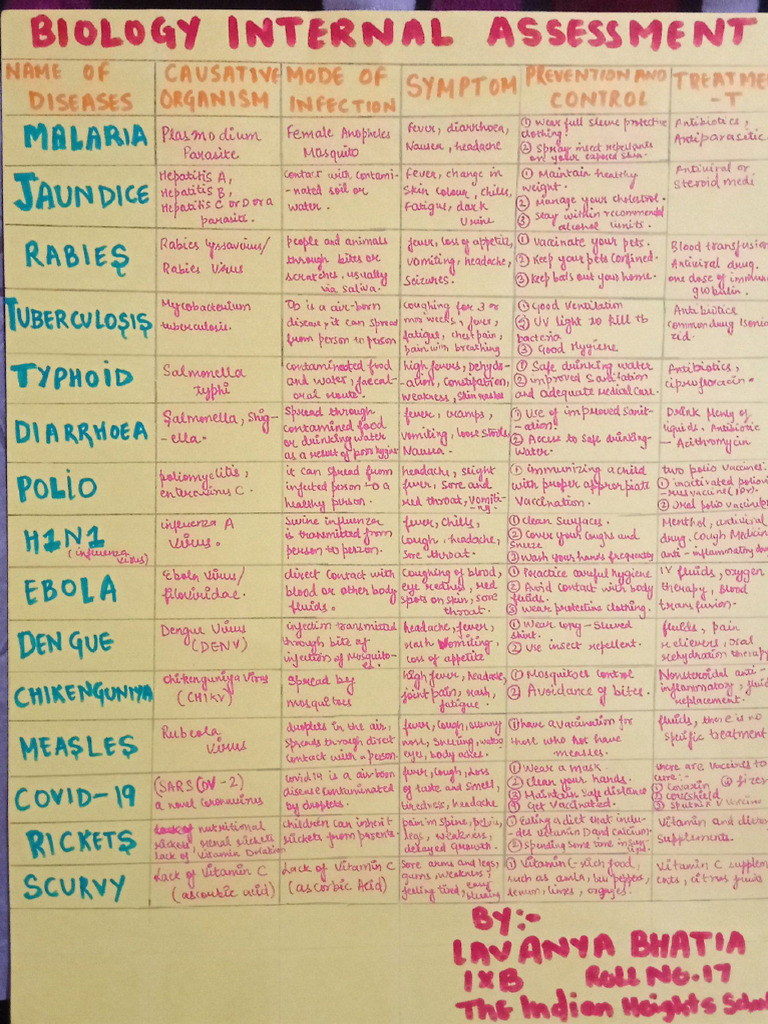 BIOLOGY INTERNAL ASSESSMENT
NAME OF DISEASES
CAUSATIVE ORGANISM
MODE OF INFECTION
SYMPTOM
PREVENTION AND CONTROL
TREATME-T
MALARIA
Plasmodium
Parasite
Female Anopheles
Mosquito
Fever, diarrhoea,
Nausea, headache
① Wear full sleeve protective
clothing!
② Spray insect repellents
on your exposed skin.
Antibiotics,
Antiparasitic
JAUNDICE
Hepatitis A,
Hepatitis B,
Hepatitis C or D or a
parasite.
Contact with contami-
-nated soil or
water.
Fever, change in
Skin colour, chills,
Fatigue, dark
Urine
① Maintain healthy
weight.
② Manage your cholestrol.
③ Stay within recommended
alcohol limits.
Antiviral or
steroid medi
RABIES
Rabies lyssavirus/
Rabies Virus
people and animals
through bites or
scratches, usually
via saliva.
fever, loss of appetite,
vomiting, headache,
Seizures.
① Vaccinate your pets.
② Keep your pets confined.
③ Keep bats out your home.
Blood transfusion
Antiviral drug.
one dose of immun
globulin.
TUBERCULOSIS
Mycobacterium
tuberculosis.
Tb is a air-born
disease, it can spread
from person to person
Coughing for 3 or
more weeks, fever,
fatigue, chest pain,
pain with breathing
① Good Ventilation
② UV light to kill tb
bacteria
③ Good Hygiene
Antibiotics
common drug Isonia
zid.
TYPHOID
Salmonella
typhi
contaminated food
and water, faecal-
oral route.
high fever, Dehydr-
-ation, constipation,
weakness, skin rashes
① Safe drinking water
② improved Sanitation
and adequate Medical Care.
Antibiotics,
ciprofloxacin.
DIARRHOEA
Salmonella, Shig-
-ella.
Spread through
contained food
or drinking water
as a result of poor hygiene
fever, cramps,
vomiting, loose stools
Nausea.
① Use of improved Sanit-
-ation!
② Access to safe drinking-
water.
Drink plenty of
liquids. Antibiotic
- Acithromycin
POLIO
poliomyelitis,
enterovirus C.
it can spread from
infected person to a
healthy person.
headache, slight
fever, Sore and
red throat, vomiti-
ng.
① immunizing a child
with proper appropriate
Vaccination.
two polio vaccines.
① inactivated poliovi-
-rus vaccine (IPV).
② Oral polio vaccine
H1N1
(influenza
virus)
influenza A
Virus.
Swine influenza
is transmitted from
person to person.
fever, chills,
Cough, headache,
Sore throat.
① clean Surfaces.
② Cover your coughs and
Sneeze
③ Wash your hands frequently
Menthol, antiviral
drug. Cough Medicin
anti-inflammatory
EBOLA
Ebola virus/
filoviridae.
direct Contact with
blood or other body
fluids.
Coughing of blood,
eye redness, red
spots on skin, sore
throat.
① Practice careful hygiene
② Avoid contact with body
fluids.
③ wear protective clothing.
IV fluids, oxygen
therapy, blood
transfusion.
DENGUE
Dengue Virus
(DENV)
infection transmitted
through bite of
infection of Mosquito-
es.
headache, fever,
rash Vomiting,
loss of appetite
① Wear long-Sleeved
shirt.
② use insect repellent.
fluids, pain
relievers, oral
rehydration therapy
CHIKENGUNIYA
chikenguniya virus
(CHIKV)
Spread by
mosquitoes
high fever, headache,
joint pain, rash,
fatigue.
① Mosquitoes control
② Avoidance of bites.
Nonsteroidal anti-
inflammatory, fluid
replacement.
MEASLES
Rubeola
virus
droplets in the air,
spreads through direct
contact with a person.
fever, cough, runny
nose, Sneezing, watery
eyes, body aches.
① have a vaccination for
those who not have
measles.
fluids, there is no
specific treatment
COVID-19
(SARS COV-2)
a novel coronavirus
Covid 19 is a air-born
disease contaminated
by droplets.
fever, cough, Loss
of taste and smell,
tiredness, headache
① Wear a mask.
② clean your hands.
③ Maintain Safe distance
④ Get Vaccinated.
there are vaccines to
cure:-
① Covaxin
② Covishield
③ Sputnik V vaccine
RICKETS
nutritional
rickets, renal rickets
lack of Vitamin D
Children can inherit
rickets from parents.
pain in spine, pelvis,
legs, weakness,
delayed growth.
① Eating a diet that inclu-
-des vitamin D and Calcium.
② Spending some time in
Vitamin and
Supplements.
SCURVY
Lack of Vitamin C
(ascorbic acid)
Lack of Vitamin C
(ascorbic Acid)
Sore arms and legs,
gums, weakness,
feeling tired, easy
bleeding
① Vitamin C-rich food,
such as amla, bell peppers,
lemon, limes, oranges.
Vitamin C supplem
ents, citrus fruits
BY:-
LAVANYA BHATIA
IXB ROLL NO.17
The Indian Heights School